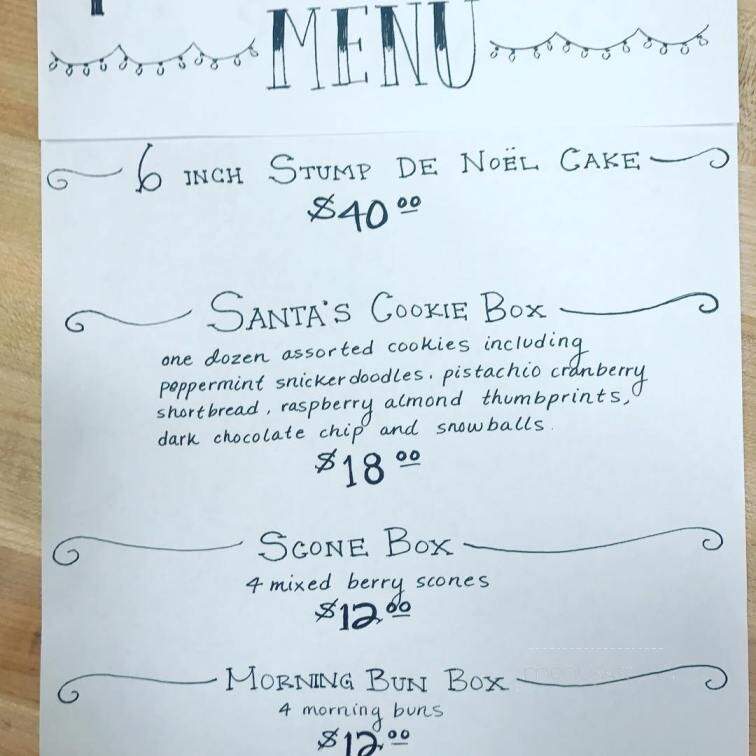 MENU
6 INCH STUMP DE NOËL CAKE
$40.00
SANTA'S COOKIE BOX
one dozen assorted cookies including
peppermint snickerdoodles, pistachio cranberry
shortbread, raspberry almond thumbprints,
dark chocolate chip and snowballs.
$18.00
SCONE BOX
4 mixed berry scones
$12.00
MORNING BUN BOX
4 morning buns
$12.00